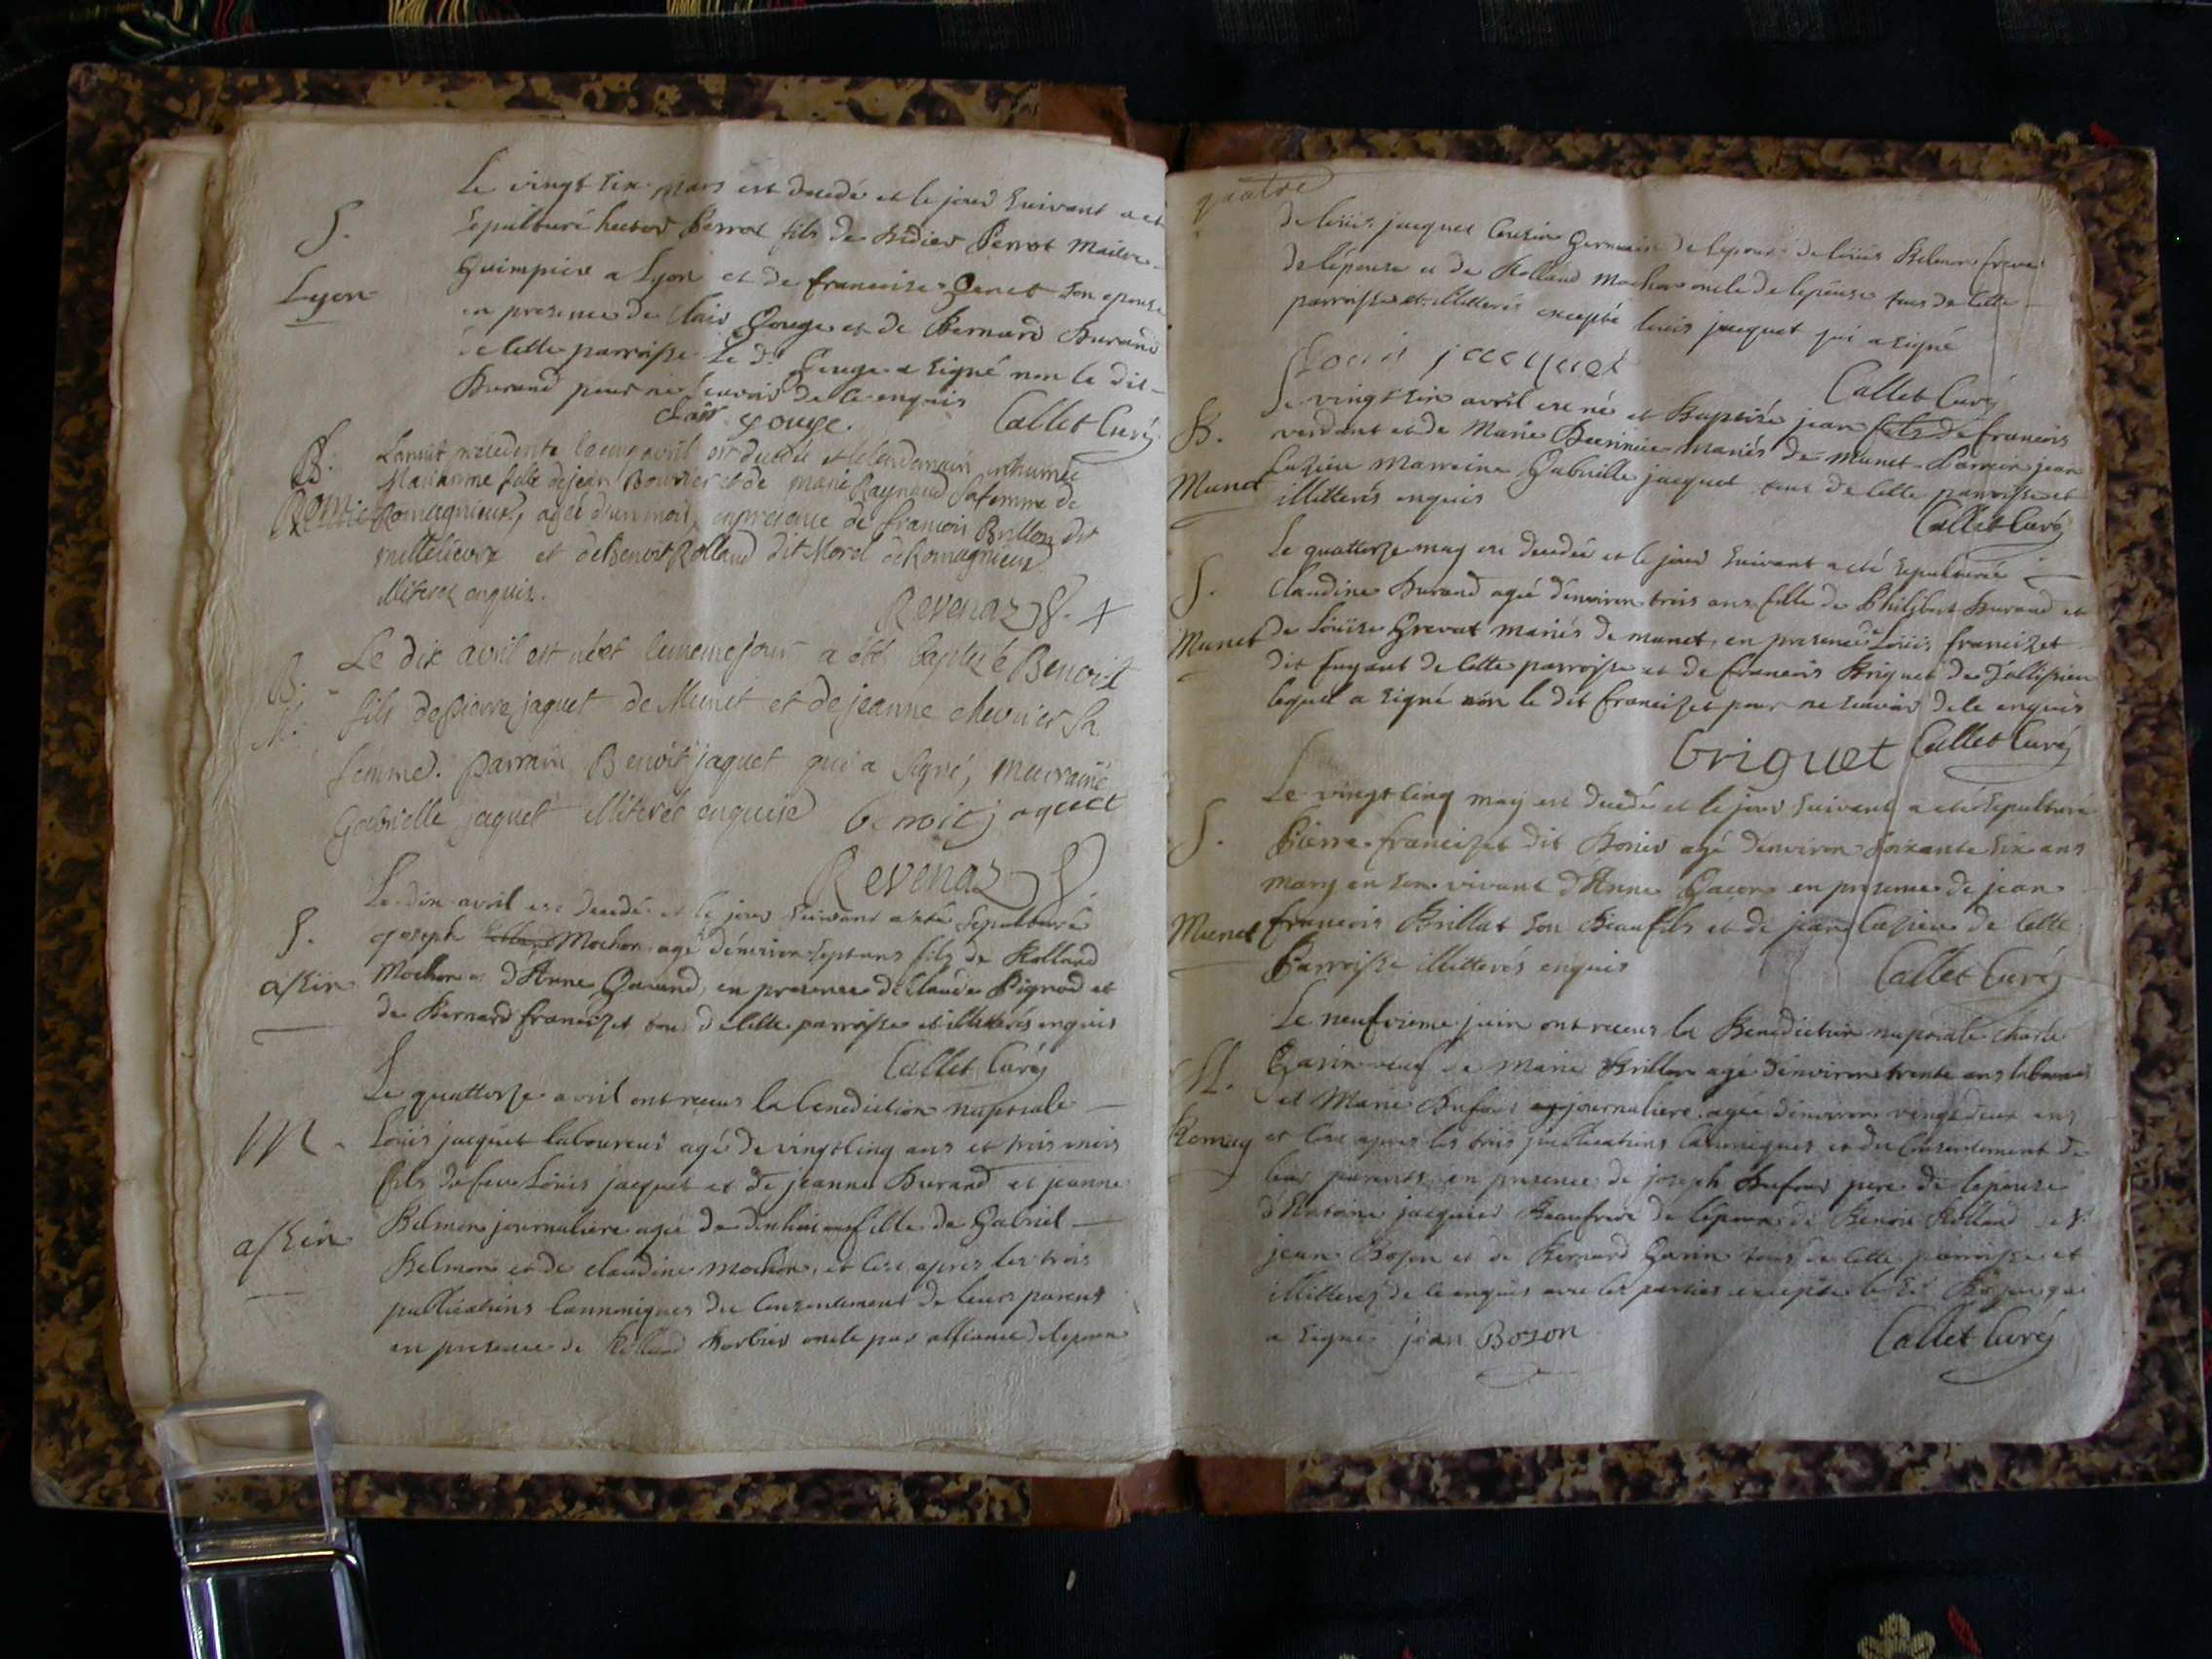 Le vingt six mars est decedé et le jour suivant a eté
S.
sepulturé hector Perrot fils de Didier Perrot Maitre
Lyon
Guimpier a Lyon et de francoise Genet son epouse
en presence de Clair Gouge et de Bernard Durand
de cette parroisse le dt Gouge a signé non le dit
Durand pour ne scavoir de ce enquis
clair gouge. Callet Curé
La nuit precedente le cinq avril est decedée et le lendemain inhumée
Marianne fille de jean Bouvier et de marie Raynaud sa femme de
Romagnieux, agée d'un mois, en presence de francois Brillon dit
millelievre et de Benoit Rolland dit Morel de Romagnieux
illiterez enquis.
Revenaz
B.
Le dix avril est né et le meme jour a été baptisé Benoit
M.
fils de pierre jaquet de Munet et de jeanne chevrier sa
femme. parrain Benoit jaquet qui a signé, marraine
Gabrielle jaquet illiterée enquise benoit jaquet
Revenaz
Le dix avril est decedé et le jour suivant a eté sepulturé
S.
joseph Mochon agé d'environ sept ans fils de Rolland
askin
Mochon et d'Anne Garand, en presence de Claude Pignod et
de Bernard francizet tous de cette parroisse et illitterés enquis
Callet Curé
Le quattorze avril ont recus la benediction nuptiale
M.
Loüis jacquet laboureur agé de vingt cinq ans et trois mois
fils de feu Loüis jacquet et de jeanne Durand et jeanne
askin
Belmon journaliere agée de dixhuit ans fille de Gabriel
Belmon et de claudine Mochon, et ce apres les trois
publications cannoniques du consentement de leurs parens
en presence de Rolland Barbier oncle par alliance de l'epoux
quatre
de loüis jacquet cousin Germain de l'epoux de loüis Belmon frere
de l'épouse et de Rolland Mochon oncle de l'épouse tous de cette
parroisse et illitterés excepté loüis jacquet qui a signé
Louis jacquet
Callet Curé
B.
Le vingt six avril est né et Baptisé jean fils de francois
verdant et de Marie mariés de Munet Parrein jean
Munet
Cuzieu Marreine Gabrielle jacquet tous de cette parroisse et
illitterés enquis
Callet Curé
Le quattorze may est decedée et le jour suivant a eté sepulturée
S.
Claudine Durand agée d'environ trois ans fille de Philibert Durand et
Munet
de Loüise Grevat mariés de munet, en presence de Loüis francizet
dit fuyant de cette parroisse et de francois Briquet de Dollissieu
lequel a signé non le dit francizet pour ne scavoir de ce enquis
briquet Callet Curé
Le vingt cinq may est decedé et le jour suivant a eté sepulturé
S.
Pierre francizet dit Bonis agé d'environ soixante six ans
mary en son vivant d'Anne Gacon en presence de jean
Munet
francois Brillat son Beaufils et de jean Cuzieu de cette
Parroisse illitterés enquis
Callet Curé
Le neufvieme juin ont recus la Benediction nuptiale charle
M.
Garin veuf de Marie Brillon agé d'environ trente ans laboureur
et Marie Dufour journaliere agée d'environ vingt deux ans
Romag
et ce apres les trois publications cannoniques et du consentement de
leur parents en presence de joseph Dufour pere de l'epouse
d'Antoine jacquier Beaufrere de l'epoux de Benoit Rolland de Sr
jean Boson et de Bernard Garin tous de cette parroisse et
illitterés de ce enquis avec les parties excepté le Sr Boson qui
a signé jean Boson
Callet Curé